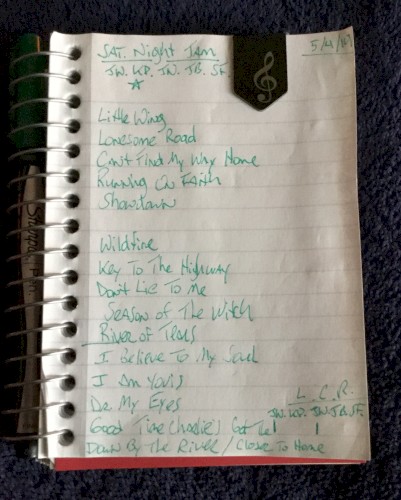 SAT. Night Jam
5/4/
JW. KP. JN. JB. SF.
Little Wing
Lonesome Road
Can't Find My Way Home
Running On Faith
Showdown
Wildfire
Key To The Highway
Don't Lie To Me
Season of The Witch
River of Tears
I Believe To My Soul
I Am Yours
Do My Eyes
L. C. R.
JW. KP. JN. JB. SF.
Good Time Charlie's Got The
Down By The River / Close To Home